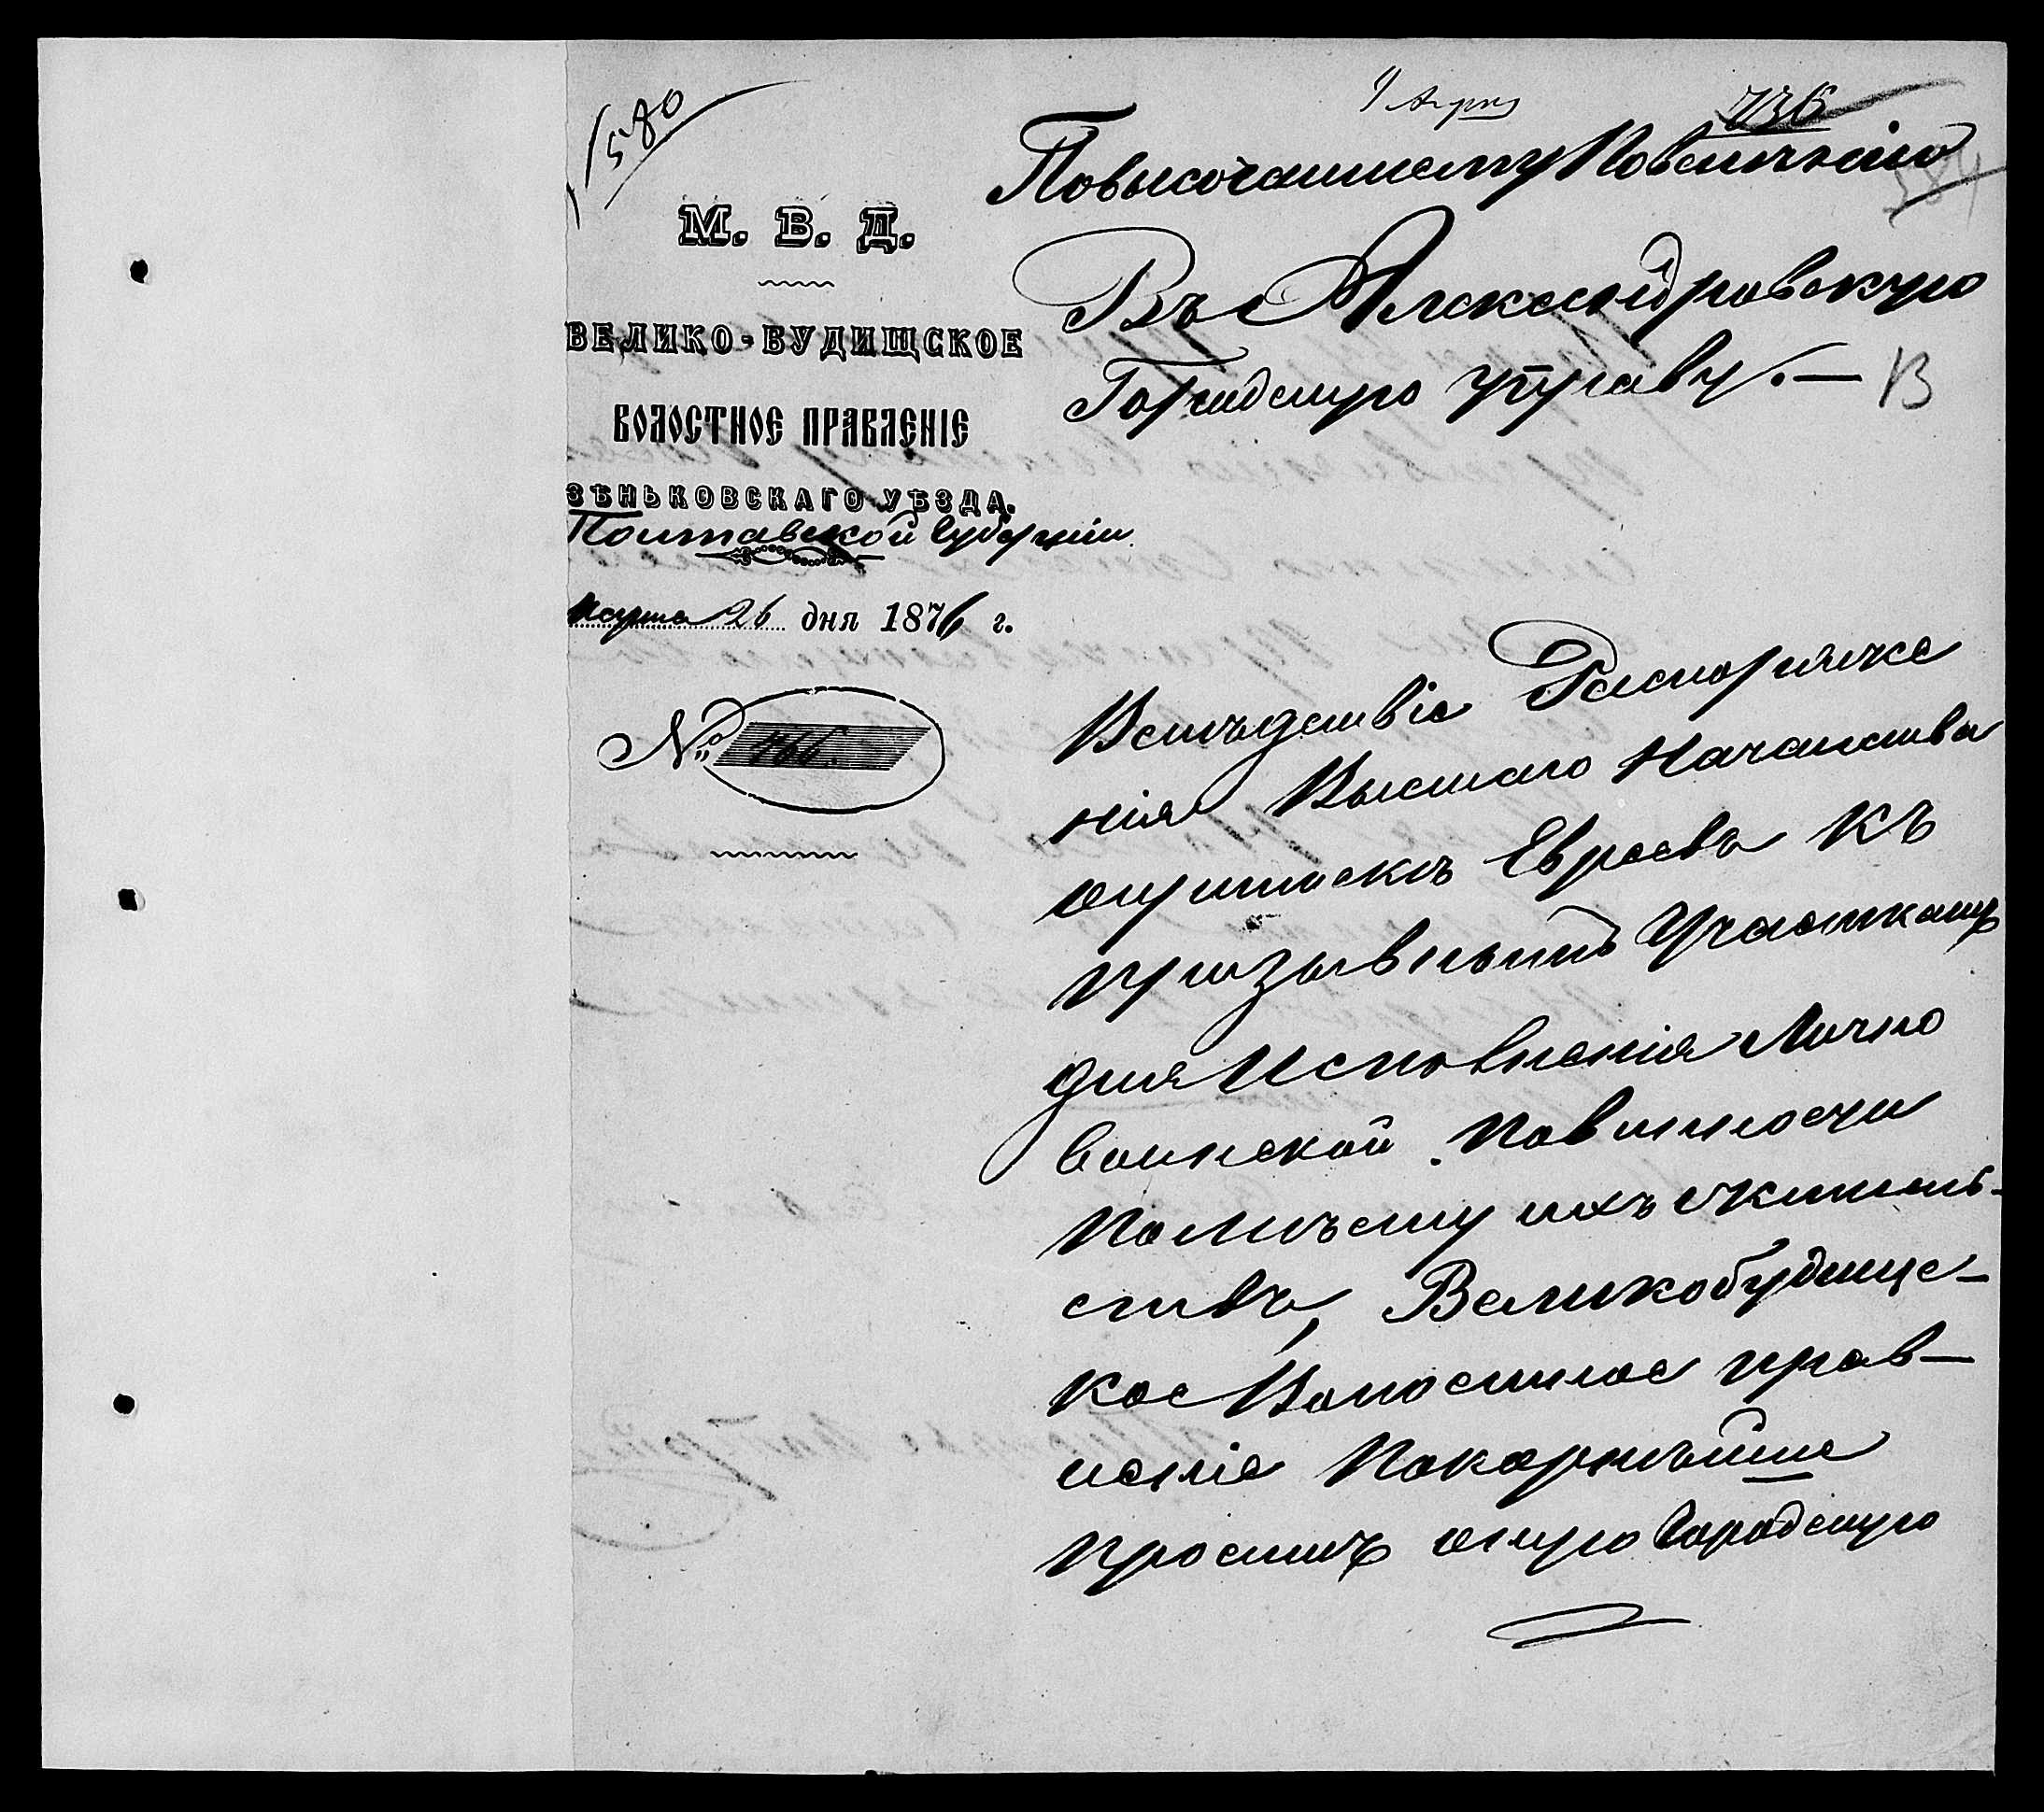 1580
М. В. Д.
ВЕЛИКО-БУДИЩСКОЕ
ВОЛОСТНОЕ ПРАВЛЕНІЕ
ЗѢНЬКОВСКАГО УѢЗДА.
Полтавской губерніи
Марта 26 дня 1876 г.
№ 766.
736
По высочайшему повелѣнію
Въ Александровскую
Городскую управу.—
В
Вслѣдствіе Распоряже
нія Высшаго Началства
о припискѣ Евреевъ къ
призывнымъ Участкамъ
для Исполненія Лично
воинской повинности
по мѣсту ихъ житель-
ствъ, Великобудищс-
кое Волостное прав-
леніе покорнѣйше
проситъ оную Городскую